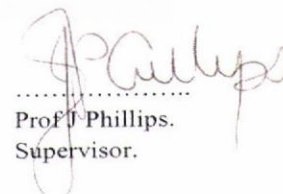 JPhillips
....................
Prof J Phillips.
Supervisor.